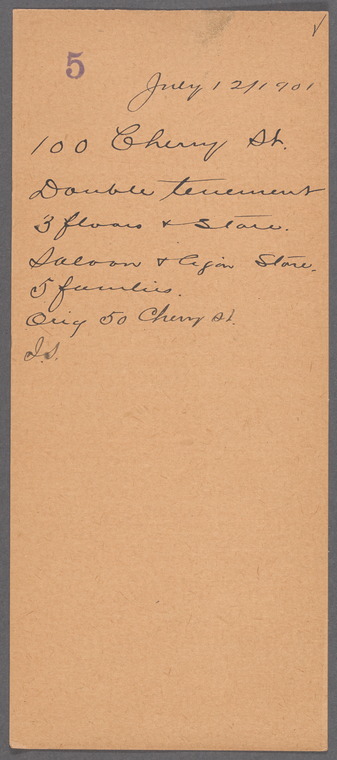 5
July 12/1901
100 Cherry St.
Double tenement
3 floors & Store.
Saloon & Cigar Store.
5 families.
Orig 50 Cherry St.
J.S.